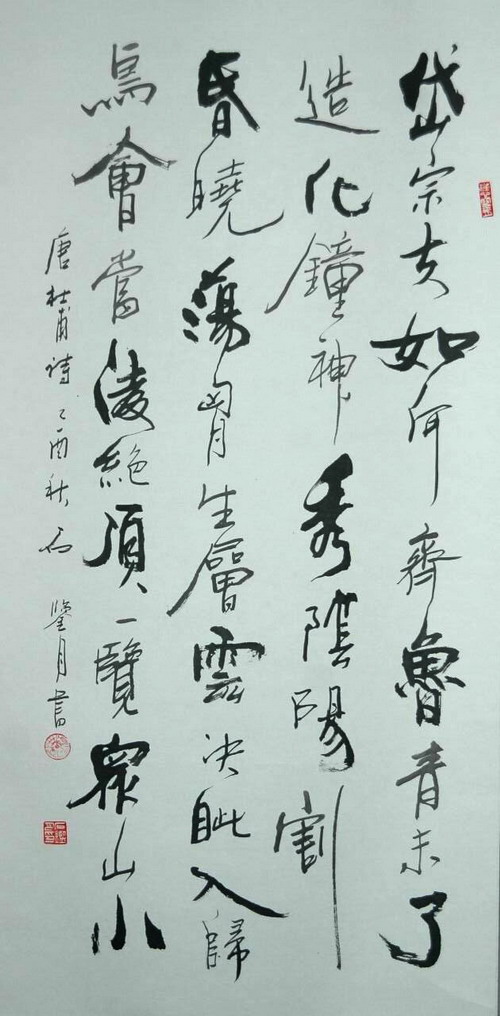 岱宗夫如何齊魯青未了
造化鐘神秀陰陽割
昏曉蕩胷生層雲決眦入歸
鳥會當凌絕頂一覽眾山小
唐杜甫詩乙酉秋石鑒月書